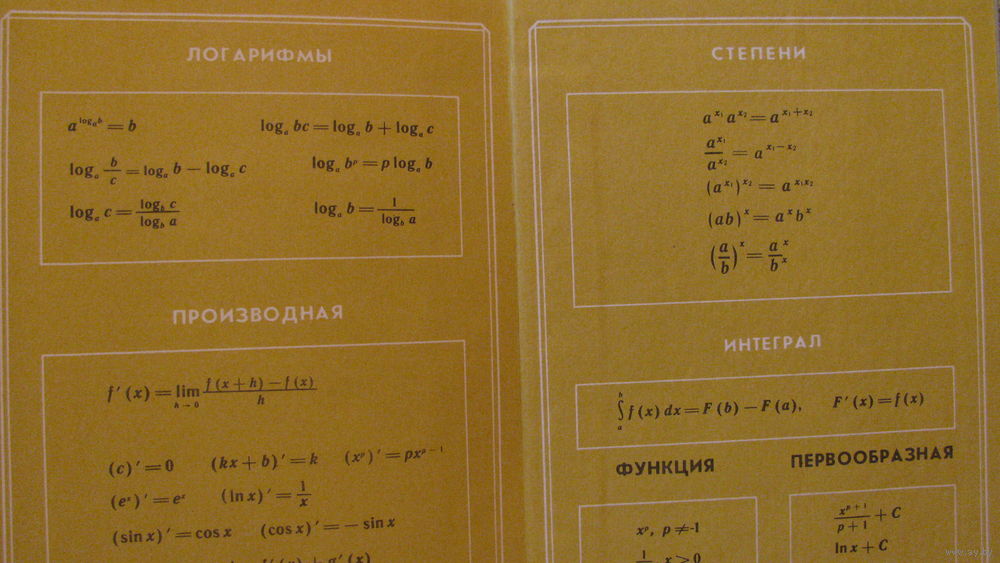 ЛОГАРИФМЫ
a^{log_a b} = b    log_a bc = log_a b + log_a c
log_a b/c = log_a b − log_a c    log_a b^p = p log_a b
log_a c = log_b c / log_b a    log_a b = 1 / log_b a
ПРОИЗВОДНАЯ
f′(x) = lim_{h→0} (f(x+h) − f(x)) / h
(c)′ = 0    (kx + b)′ = k    (x^p)′ = px^{p−1}
(e^x)′ = e^x    (ln x)′ = 1/x
(sin x)′ = cos x    (cos x)′ = − sin x
СТЕПЕНИ
a^{x₁} a^{x₂} = a^{x₁+x₂}
a^{x₁} / a^{x₂} = a^{x₁−x₂}
(a^{x₁})^{x₂} = a^{x₁x₂}
(ab)^x = a^x b^x
(a/b)^x = a^x / b^x
ИНТЕГРАЛ
∫_a^b f(x) dx = F(b) − F(a),    F′(x) = f(x)
ФУНКЦИЯ    ПЕРВООБРАЗНАЯ
x^p, p ≠ -1    x^{p+1} / p+1 + C
x > 0    ln x + C
www.ay.by